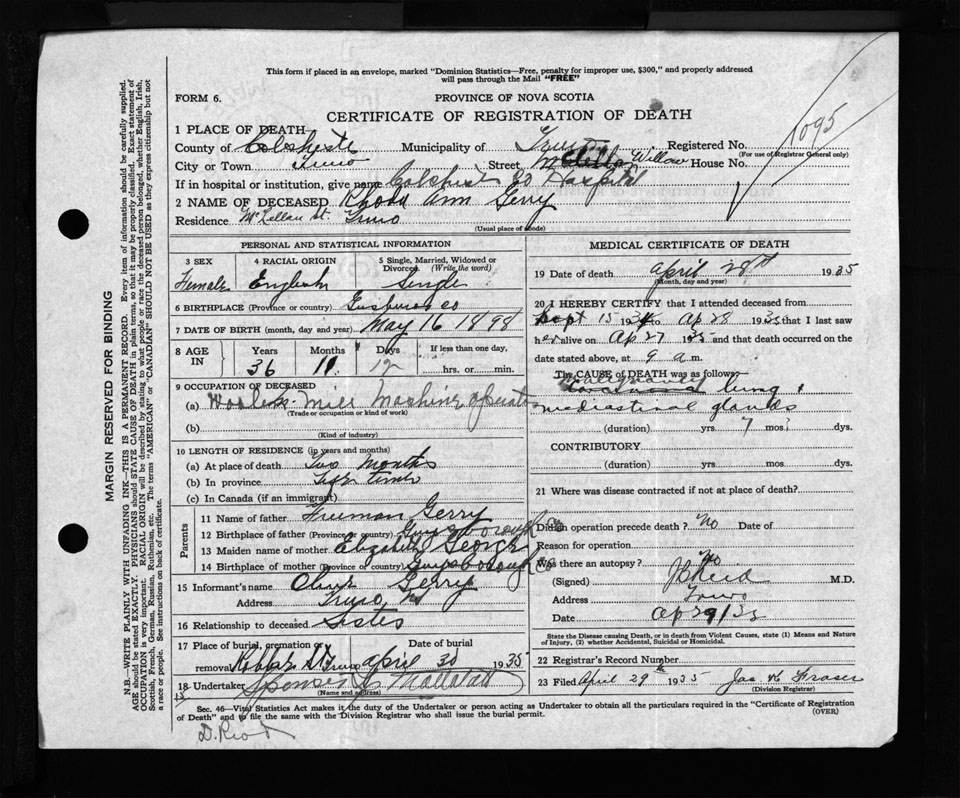 This form if placed in an envelope, marked "Dominion Statistics—Free, penalty for improper use, $300," and properly addressed
will pass through the Mail "FREE"
FORM 6.
PROVINCE OF NOVA SCOTIA
CERTIFICATE OF REGISTRATION OF DEATH
1095
1 PLACE OF DEATH
County of Colchester Municipality of Truro Registered No.
(For use of Registrar General only)
City or Town Truro Street, Willow House No.
If in hospital or institution, give name Colchest Co Hospital
2 NAME OF DECEASED Rhoda Ann Gerry
Residence McLellan St. Truro
(Usual place of abode)
PERSONAL AND STATISTICAL INFORMATION
3 SEX 4 RACIAL ORIGIN 5 Single, Married, Widowed or
Divorced. (Write the word)
Female English Single
6 BIRTHPLACE (Province or country) Co
7 DATE OF BIRTH (month, day and year) May 16 1898
8 AGE IN Years Months Days If less than one day,
36 11 12 hrs. or min.
9 OCCUPATION OF DECEASED
(a) Woolen Mill Machine operator
(Trade or occupation or kind of work)
(b)
(Kind of industry)
10 LENGTH OF RESIDENCE (in years and months)
(a) At place of death Two Months
(b) In province Life time
(c) In Canada (if an immigrant)
Parents
11 Name of father Freeman Gerry
12 Birthplace of father (Province or country) Guysborough Co
13 Maiden name of mother Elizabeth George
14 Birthplace of mother (Province or country) Guysborough Co
15 Informant's name Gerry
Address Truro, NS
16 Relationship to deceased Sister
17 Place of burial, cremation or Date of burial
removal Truro April 30 1935
18 Undertaker
(Name and address)
MEDICAL CERTIFICATE OF DEATH
19 Date of death April 28th 1935
(Month, day and year)
20 I HEREBY CERTIFY that I attended deceased from
Sept 15 1934 to Ap 28 1935 that I last saw
her alive on Ap 27 1935 and that death occurred on the
date stated above, at 9 a m.
The CAUSE OF DEATH was as follows:
Malignancy lung &
mediastinal glands
(duration) yrs 7 mos. dys.
CONTRIBUTORY
(duration) yrs. mos. dys.
21 Where was disease contracted if not at place of death?
Did an operation precede death? No Date of
Reason for operation
Was there an autopsy? No
(Signed) M.D.
Address Truro
Date Ap 29/35
State the Disease causing Death, or in death from Violent Causes, state (1) Means and Nature
of Injury, (2) whether Accidental, Suicidal or Homicidal.
22 Registrar's Record Number
23 Filed April 29th 1935 Jas K Fraser
(Division Registrar)
Sec. 46—Vital Statistics Act makes it the duty of the Undertaker or person acting as Undertaker to obtain all the particulars required in the "Certificate of Registration
of Death" and to file the same with the Division Registrar who shall issue the burial permit.
(OVER)
MARGIN RESERVED FOR BINDING
N.B.—WRITE PLAINLY WITH UNFADING INK—THIS IS A PERMANENT RECORD. Every item of information should be carefully supplied.
AGE should be stated EXACTLY. PHYSICIANS should STATE CAUSE OF DEATH in plain terms, so that it may be properly classified. Exact statement of
OCCUPATION is very important. RACIAL ORIGIN will be described by stating to what people or race the deceased person belonged, whether English, Irish,
Scottish, French, German, Russian, Ruthenian, etc. The terms "AMERICAN" or "CANADIAN" SHOULD NOT BE USED as they express citizenship but not
a race or people. See instructions on back of certificate.